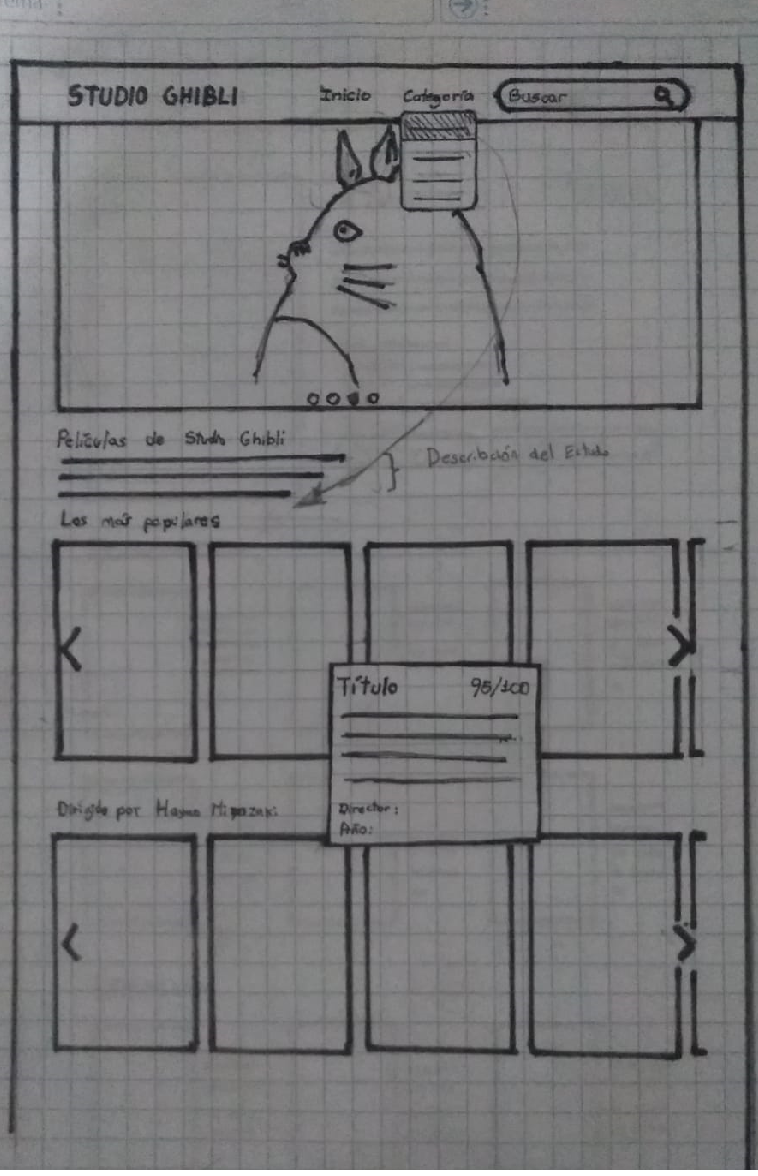 STUDIO GHIBLI Inicio Categoría Buscar
Películas de Studio Ghibli
Describción del Estudo
Las más populares
Título 95/100
Director:
Año:
Dirigida por Hayao Miyazaki